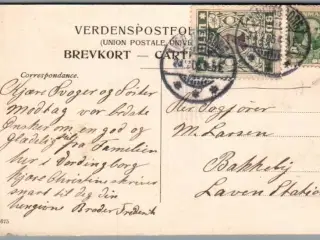 VERDENSPOSTFO
(UNION POSTALE UNIV
BREVKORT — CART
Correspondance.
Kjære Svoger og Søster
Modtag vor bedste
Ønsker om en god og
Glædelig Jul fra Familien
her i Vordingborg
hjos Christine skriver
snart til dig Din
Broder Frederik
Her Fogfører
M. Larsen
Bakkeby
Laven Station